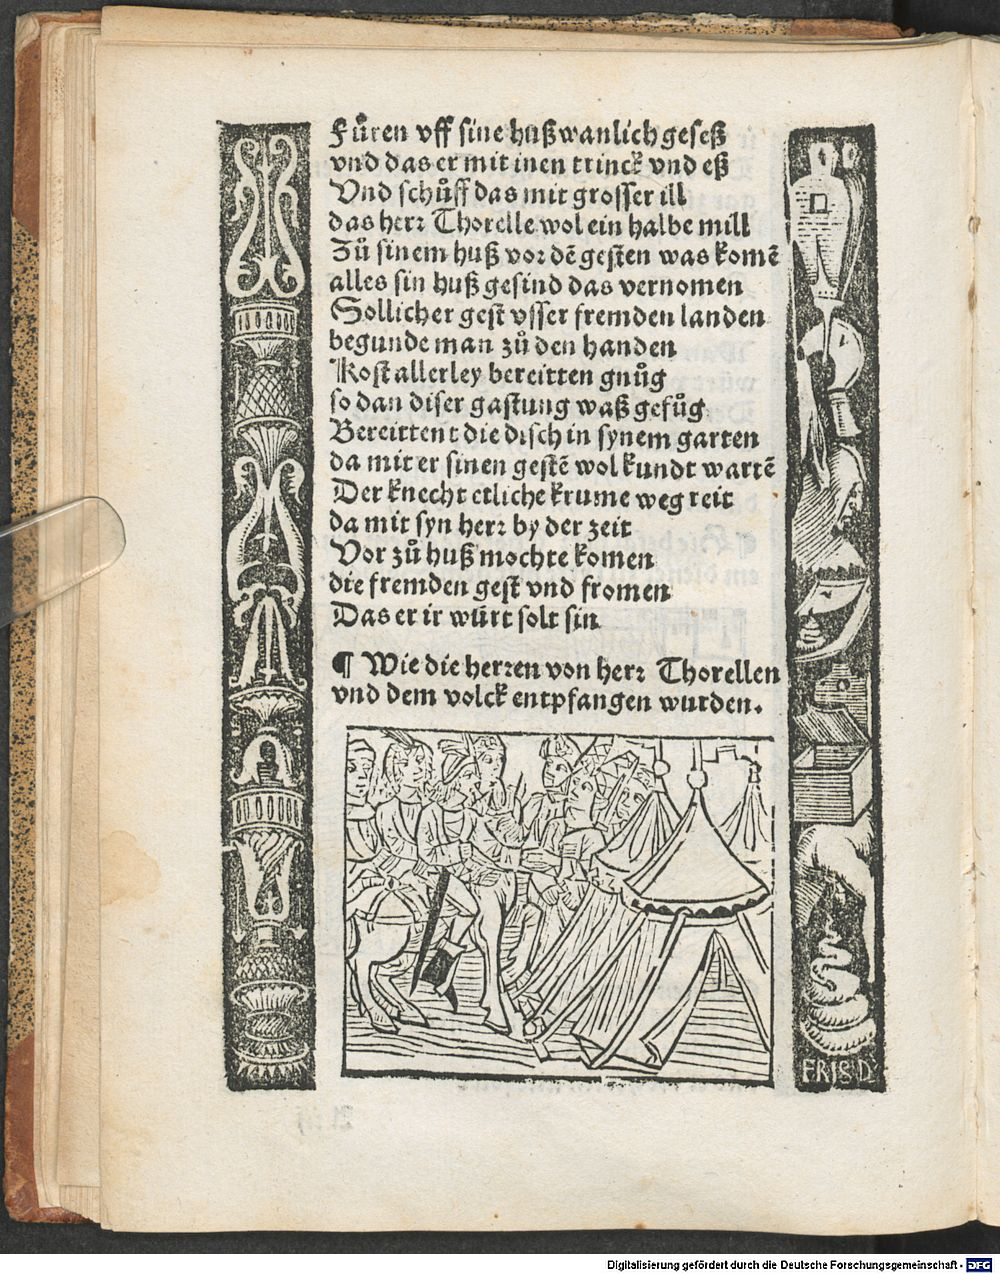 Fuͤren vff sine hußwanlich geseß
vnd das er mit inen trinck vnd eß
Vnd schuͦff das mit grosser ill
das herr Thorelle wol ein halbe mill
Zuͦ sinem huß vor dē gesten was komē
alles sin huß gesind das vernomen
Sollicher gest vsser fremden landen
begunde man zuͦ den handen
Kost allerley bereitten gnuͦg
so dan diser gastung waß gefuͦg
Bereittent die disch in synem garten
da mit er sinen gestē wol kundt wartē
Der knecht etliche krume weg reit
da mit syn herr by der zeit
Vor zuͦ huß mochte komen
die fremden gest vnd fromen
Das er ir wuͤrt solt sin
¶ Wie die herren von herr Thorellen
vnd dem volck entpfangen wurden.
FRISD
Digitalisierung gefördert durch die Deutsche Forschungsgemeinschaft - DFG